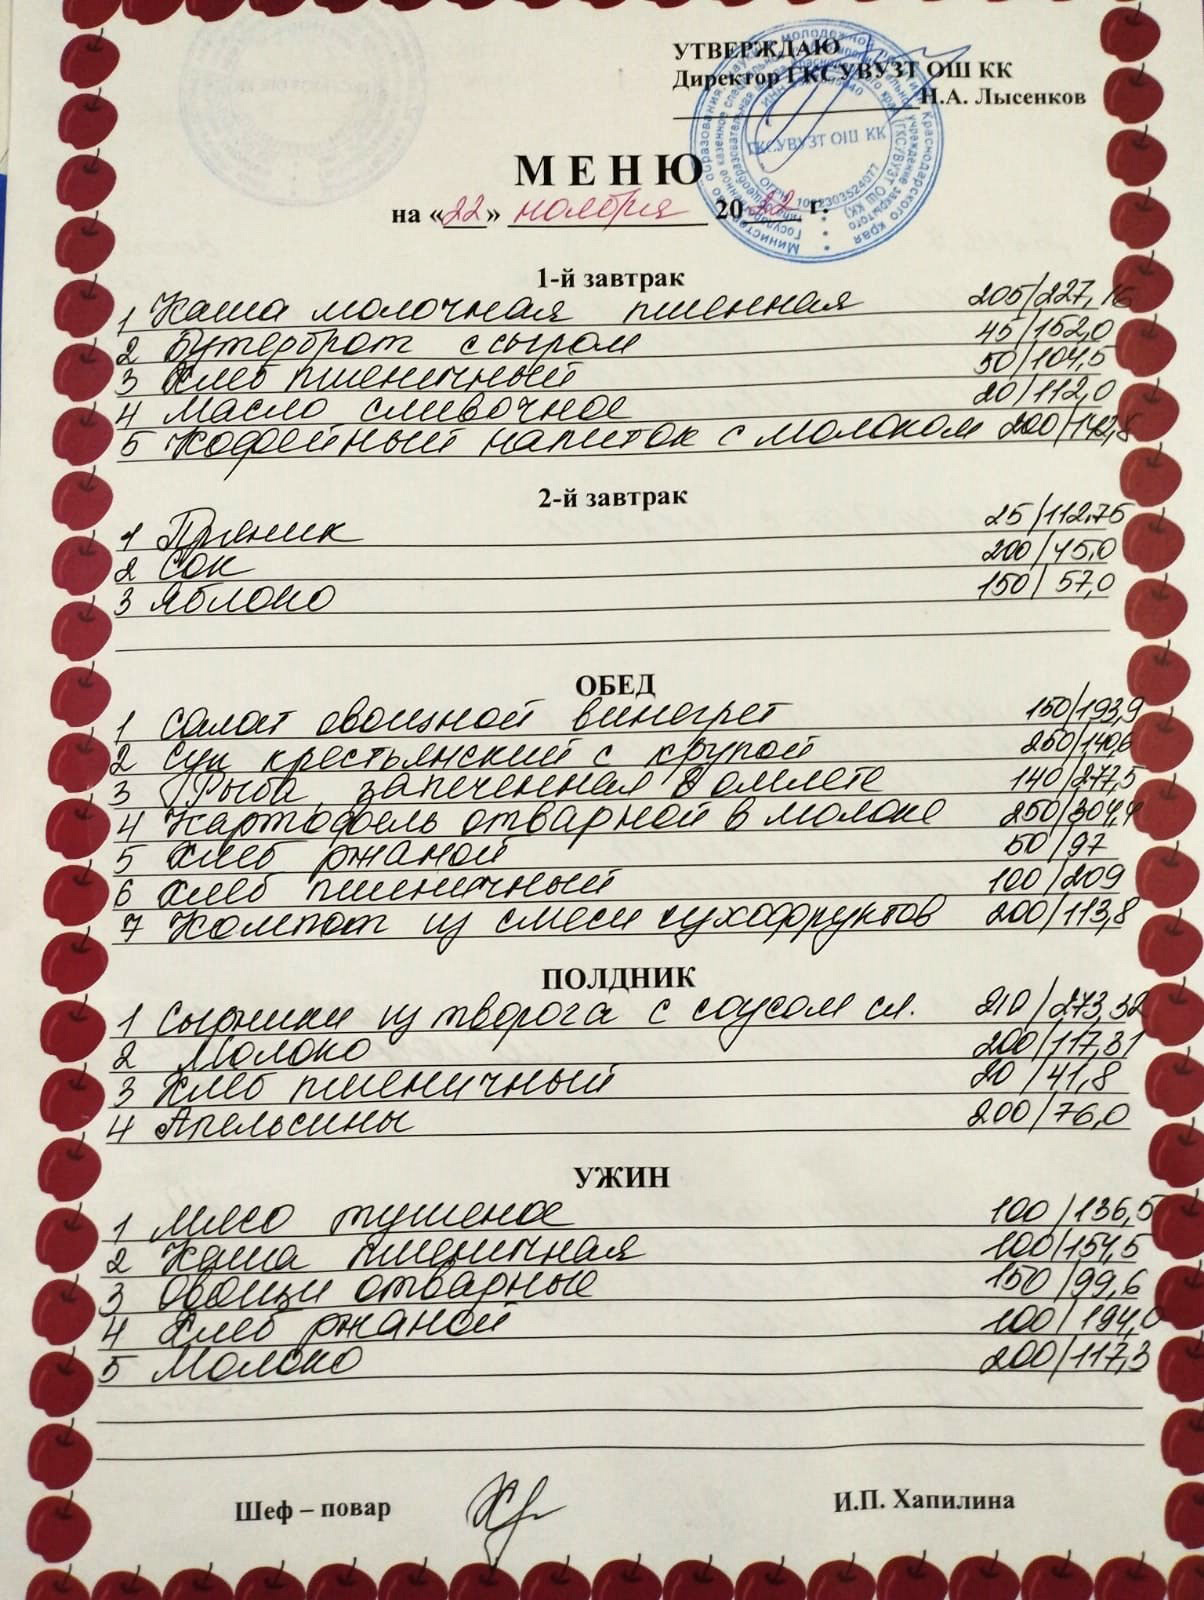 УТВЕРЖДАЮ
Директор ГКСУВУЗТ ОШ КК
Н.А. Лысенков
ГКСУВУЗТ ОШ КК
МЕНЮ
на «22» ноября 2022 г.
1-й завтрак
1 Каша молочная пшенная 205/227,16
2 Бутерброт с сыром 45/152,0
3 Хлеб пшеничный 50/104,5
4 Масло сливочное 20/112,0
5 Кофейный напиток с молоком 200/142,8
2-й завтрак
1 Пряник 25/112,75
2 Сок 200/45,0
3 Яблоко 150/57,0
ОБЕД
1 Салат овощной винегрет 150/193,9
2 Суп крестьянский с крупой 250/140,6
3 Рыба, запеченная в омлете 140/277,5
4 Картофель отварной в молоке 250/304,4
5 Хлеб ржаной 50/97
6 Хлеб пшеничный 100/209
7 Компот из смеси сухофруктов 200/113,8
ПОЛДНИК
1 Сырники из творога с соусом сл. 210/273,32
2 Молоко 200/117,31
3 Хлеб пшеничный 20/41,8
4 Апельсины 200/76,0
УЖИН
1 Мясо тушеное 100/136,5
2 Каша пшеничная 100/154,5
3 Овощи отварные 150/99,6
4 Хлеб ржаной 100/194,0
5 Молоко 200/117,3
Шеф – повар И.П. Хапилина